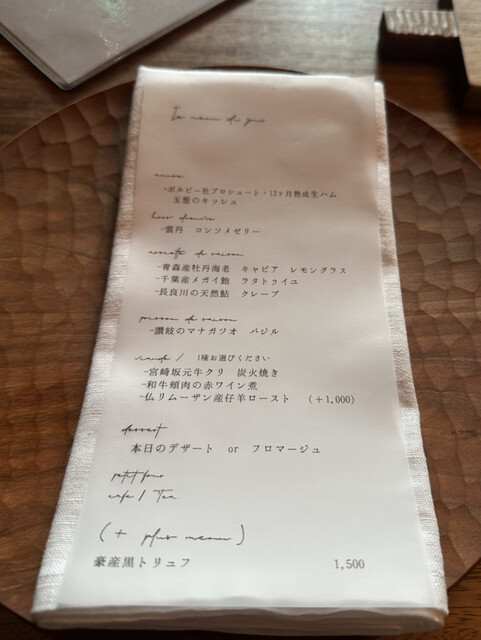 le menu du jour
amuse
-ボルピー社プロシュート・12ヶ月熟成生ハム
玉葱のキッシュ
hors d'œuvre
-雲丹 コンソメゼリー
assiette de saison
-青森産牡丹海老 キャビア レモングラス
-千葉産メガイ鮑 ラタトゥイユ
-長良川の天然鮎 クレープ
poisson de saison
-讃岐のマナガツオ バジル
viande / 1種お選びください
-宮崎坂元牛クリ 炭火焼き
-和牛頬肉の赤ワイン煮
-仏リムーザン産仔羊ロースト (+1,000)
dessert
本日のデザート or フロマージュ
petit four
cafe / Tea
(+ plus menu)
豪産黒トリュフ 1,500